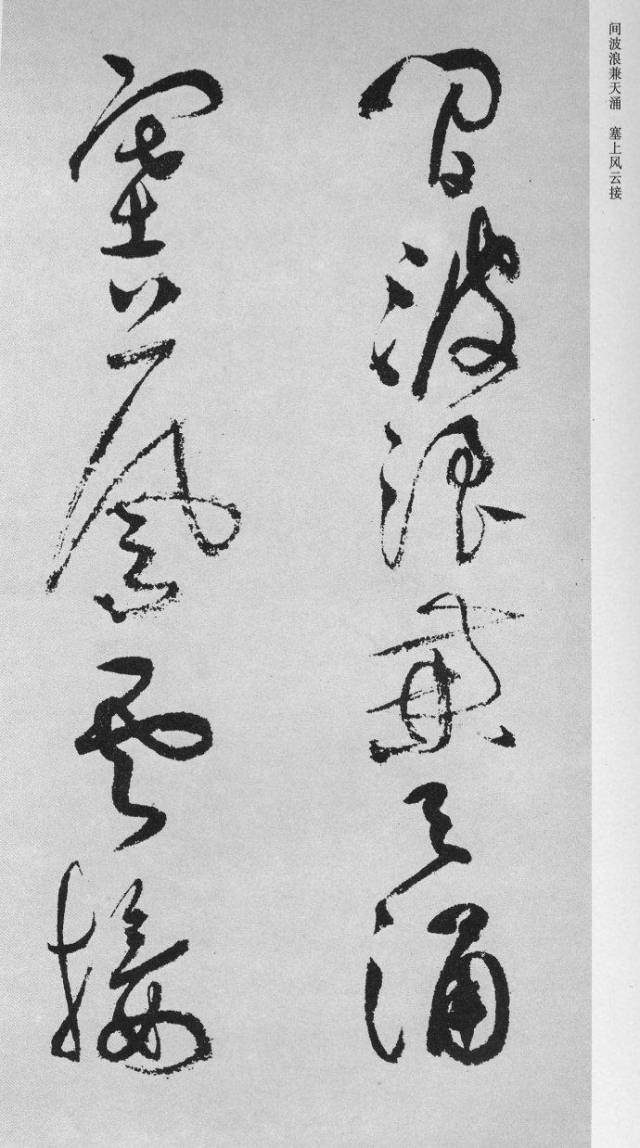 间波浪兼天涌 塞上风云接
間波浪兼天涌
塞上風雲接